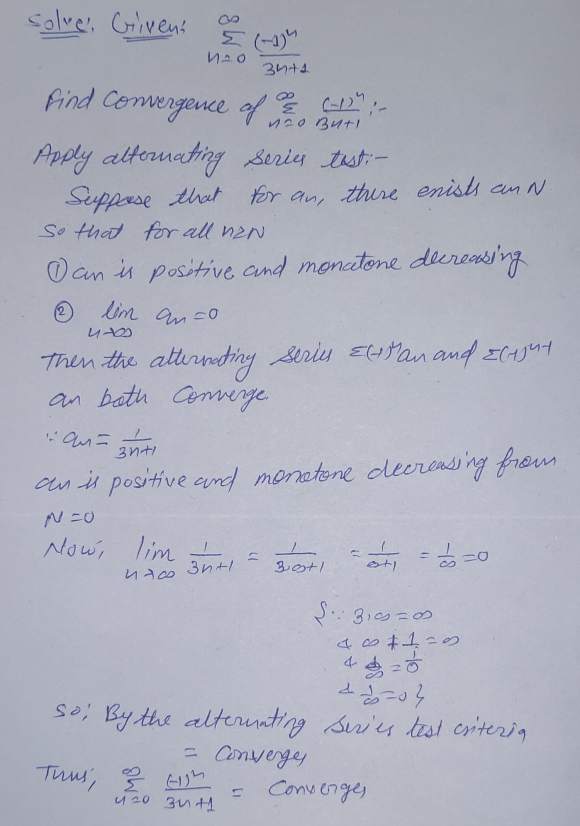 Solve: Given: ∞Σn=0 (-1)^n/3n+1
Find Convergence of ∞Σn=0 (-1)^n/3n+1 :-
Apply alternating series test:-
Suppose that for an, there exists an N
So that for all n≥N
① an is positive and monotone decreasing
② lim n→∞ an = 0
Then the alternating series Σ(-1)^n an and Σ(-1)^n-1
an both Converge.
∵ an = 1/3n+1
an is positive and monotone decreasing from
N=0
Now, lim n→∞ 1/3n+1 = 1/3.∞+1 = 1/∞+1 = 1/∞ = 0
{∵ 3.∞ = ∞
& ∞ + 1 = ∞
& = 1/0
& 1/∞ = 0}
So; By the alternating series test criteria
= Converges
Thus, ∞Σn=0 (-1)^n/3n+1 = Converges